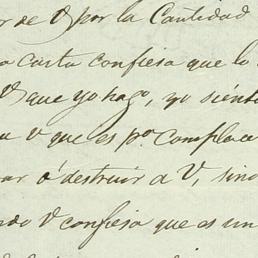 or de V por la Cantidad
a carta confiesa que lo
V que yo hago, yo siento
a V que es pᵒ. complace
ar ó destruir a V, sino
ndo V confiesa que es un